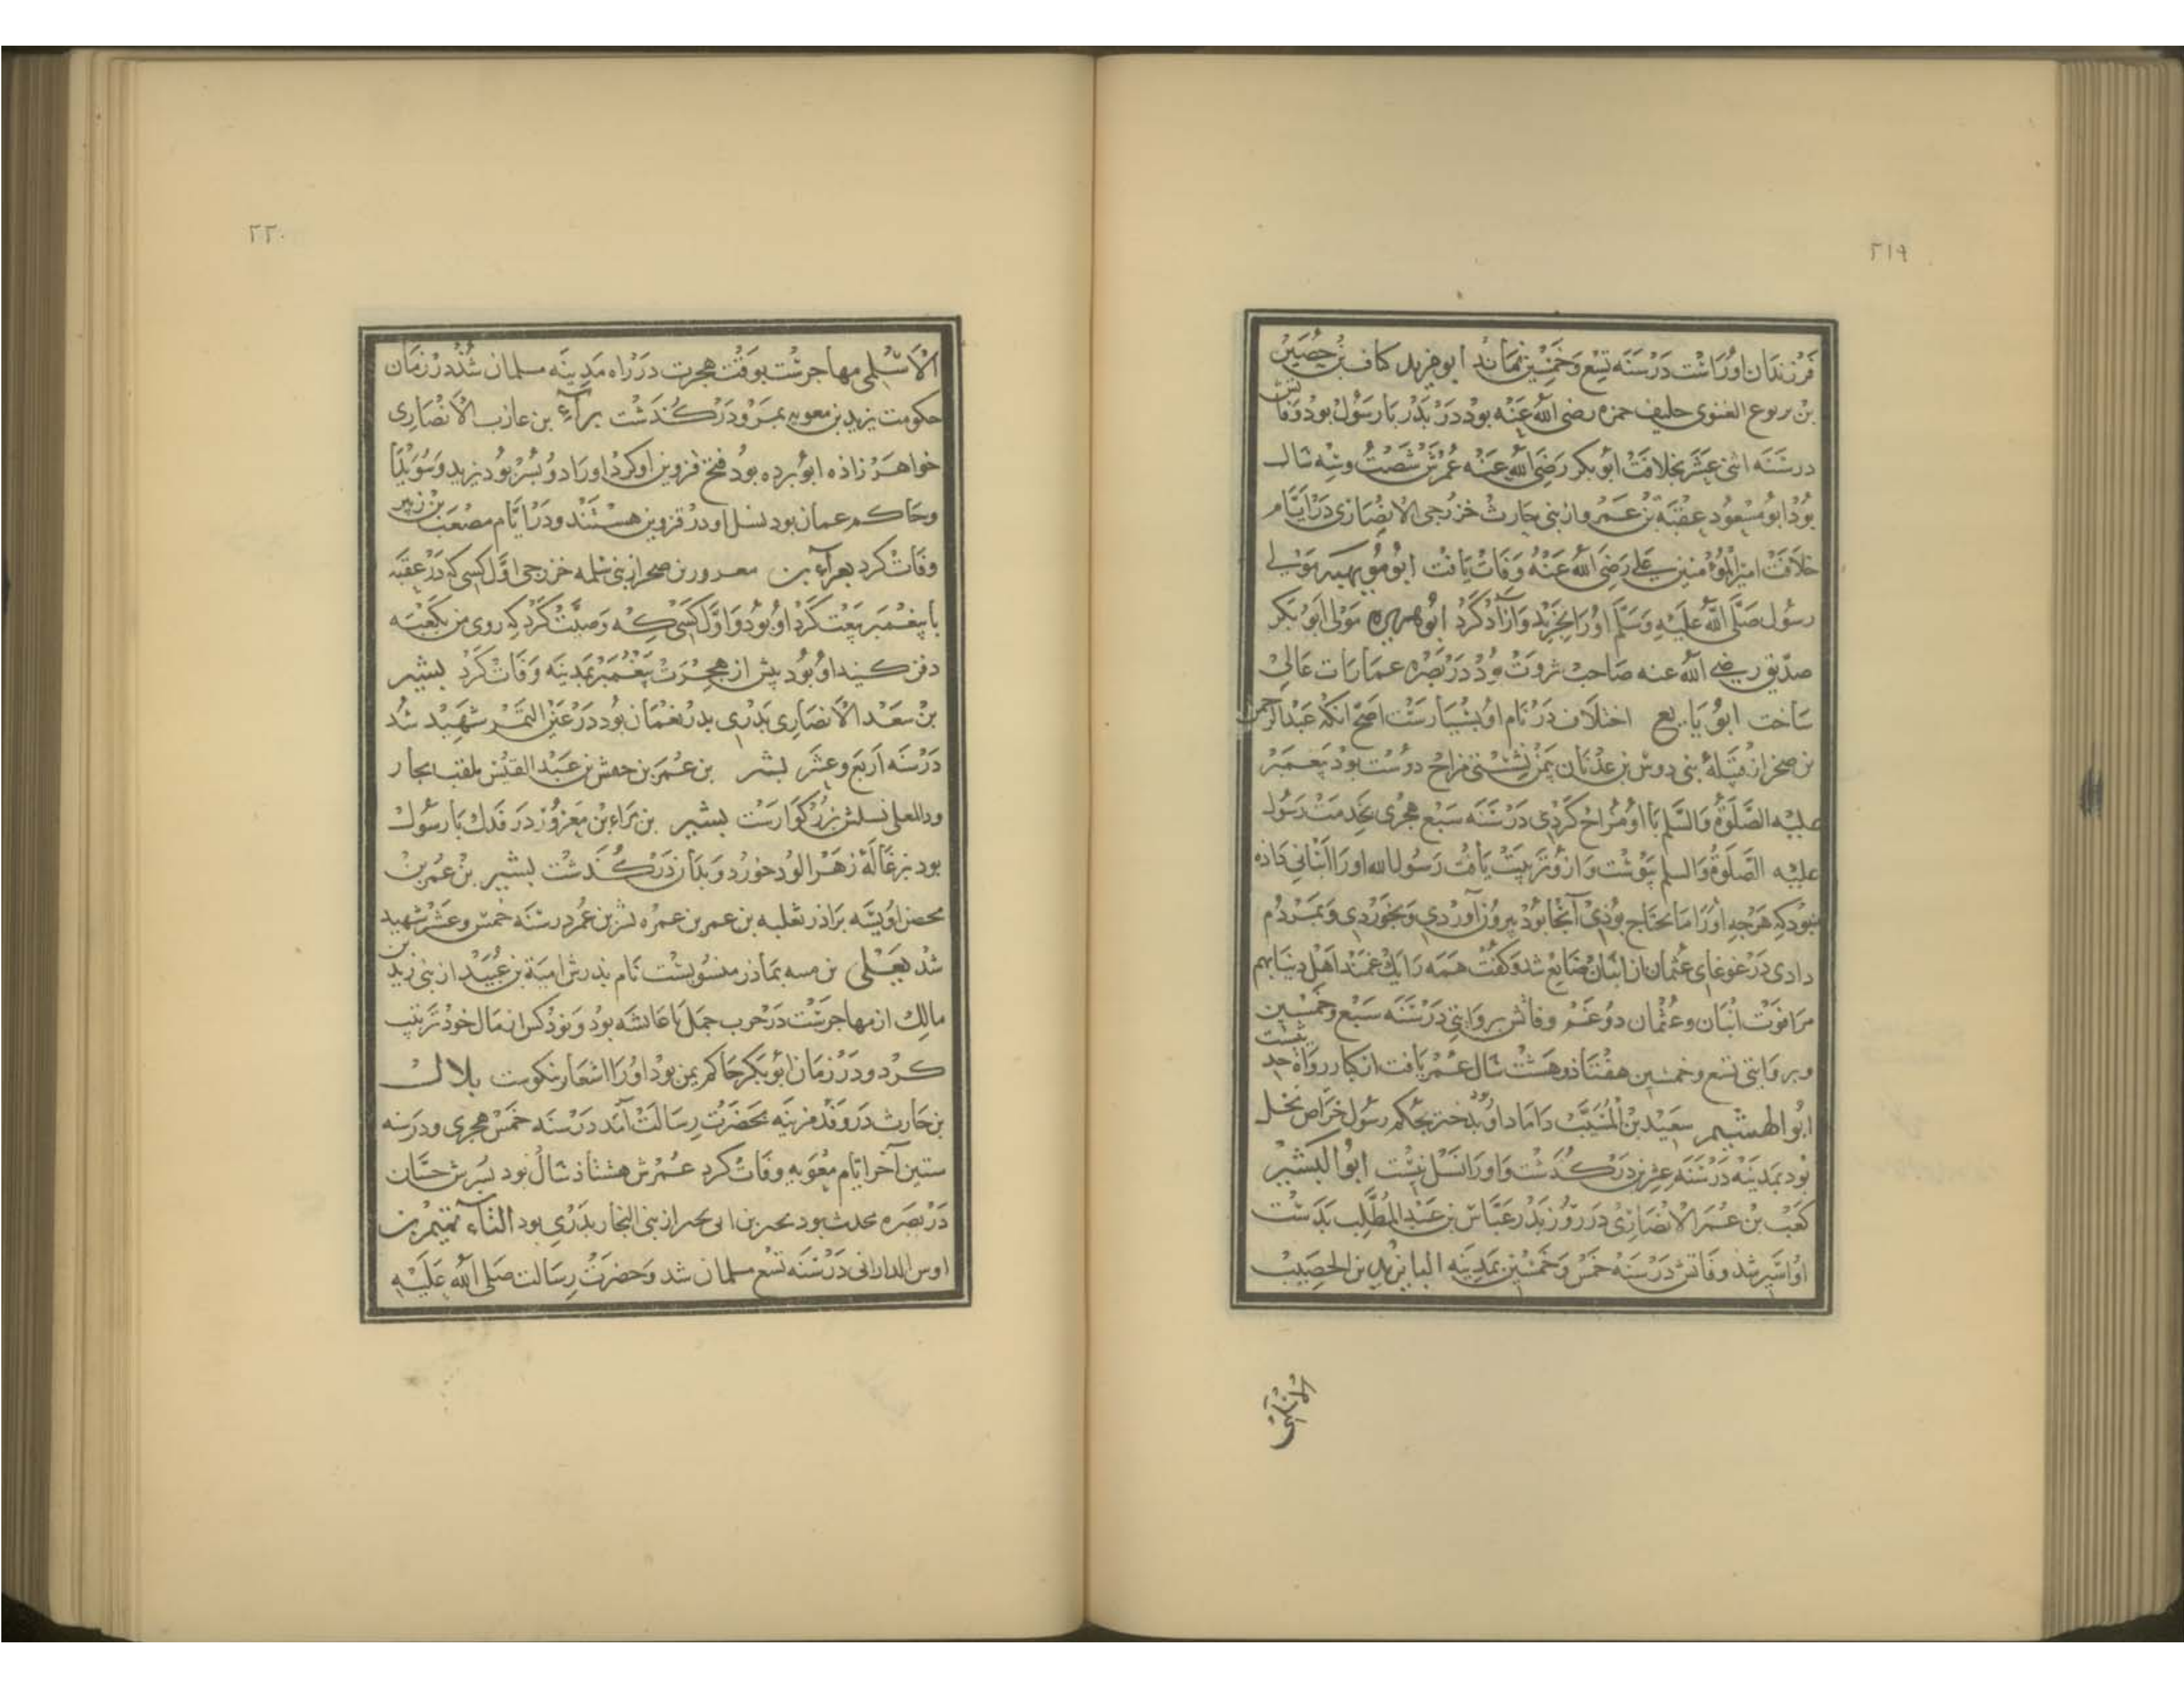 ٢١٩
فرزندان اوراست در سنه تسع و خمسین نماند ابو مرثد کناز بن حصین
بن یربوع الغنوی حلیف حمزه رضی الله عنه بود در بدر با رسول بود وفاتش
در سنه اثنی عشر بخلافت ابوبکر رضی الله عنه عمرش شصت و سه سال
بود ابو مسعود عقبة بن عمرو از بنی حارث خزرجی الانصاری در ایام
خلافت امیرالمؤمنین علی رضی الله عنه وفات یافت ابو مویهبه مولی
رسول صلی الله علیه وسلم اورا بخرید و آزاد کرد ابو هریره مولی ابو بکر
صدیق رضی الله عنه صاحب ثروت بود در بصره عمارات عالی
ساخت ابو یا یع اختلاف در نام او بسیارست اصح آنکه عبدالرحمن
بن صخر از قبیلهٔ بنی دوس بن عدنان بمن نشستی مزاح دوست بود پیغمبر
علیه الصلوة والسلم با او مزاح کردی در سنه سبع هجری بخدمت رسول
علیه الصلوة والسلم پیوست و ازو تربیت یافت رسول الله اورا انبانی داده
نبود که هرچه اورا ما یحتاج بودی آنجا بود بیرون آوردی و بخوردی و بمردم
دادی در غوغای عثمان ان انبان ضایع شد و گفت همه را یک غمند اهل دنیا بهم
مرا فوت انبان و عثمان دو غم وفاتش بروایتی در سنه سبع و خمسین
و بروایتی تسع و خمسین هفتاد و هشت سال عمر یافت از کبار رواة حدیثست
ابو الهشیم سعید بن المسیب داماد او بدختر بحکم رسول خراص نخل
بود بمدینه در سنه عشرین درگذشت و اورا نسل نیست ابو الکیشیر
کعب بن عمر الانصاری در روز بدر عباس بن عبد المطلب بدست
او اسیر شد وفاتش در سنه خمس و خمسین بمدینه البا بریدة بن الحصیب
الاسلمی
٢٢٠
الاسلمی مهاجرست بوقت هجرت در راه مدینه مسلمان شد در زمان
حکومت یزید بن معویه بمرو درگذشت برآء بن عازب الانصاری
خواهر زاده ابو برده بود فتح قزوین او کرد اورا دو پسر بود یزید و سویدا
و حاکم عمان بود نسل او در قزوین هستند و در ایام مصعب بن زبیر
وفات کرد بعرآء بن معرور بن صحر از بنی سلمه خزرجی اول کسی که در عقبه
با پیغمبر بیعت کرد او بود و اول کسی که وصیت کرد که روی من بکعبه
دفن کنید او بود پیش از هجرت پیغمبر بمدینه وفات کرد بشیر
بن سعد الانصاری بدری پدر نعمان بود در عین التمر شهید شد
در سنه اربع و عشر بشر بن عمر بن حفش بن عبد القیس ملقب بجار
ود المعلی نسلش بزرگوارست بشیر بن براء بن معرور در فدک با رسول
بود بزغالهٔ زهر الود خورد و بدان درگذشت بشیر بن عمر بن
محصن او یسه برادر ثعلبه بن عمر بن عمره بشر بن عمر در سنه خمس و عشر شهید
شد یعلی بن مسه بماذر منسوبست نام پدرش امیة بن عبید از بنی زید بن
مالک از مهاجرست در حرب جمل با عایشه بود و نود کس از مال خود ترتیب
کرد و در زمان ابوبکر حاکم یمن بود اورا اشعار نکوست بلال
بن حارث در وفد مزینه بحضرت رسالت آمد در سنه خمس هجری و در سنه
ستین آخر ایام معویه وفات کرد عمرش هشتاد سال بود پسرش حسان
در بصره محدث بود بحر بن ابی بحر از بنی النجار بدری بود الثاء تمیم بن
اوس الدارانی در سنه تسع مسلمان شد و حضرت رسالت صلی الله علیه